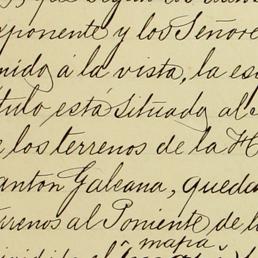 xponente y los Señore
nido, á la vista, la es
tulo está situada al
e los terrenos de la H
anton Galeana, queda
rrenos al Poniente de l
mapa